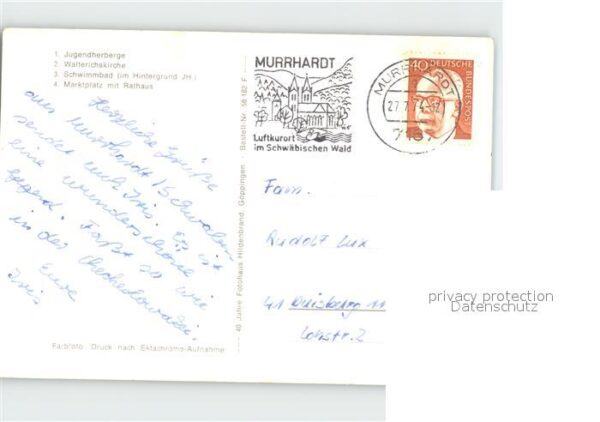 1. Jugendherberge
2. Walterichskirche
3. Schwimmbad (im Hintergrund JH.)
4. Marktplatz mit Rathaus
Herzliche Grüße
aus Murrhardt/Schwaben
sendet euch Iris. Es ist
eine wunderschöne
Gegend. Fast so wie
in der
Eure
Iris
Farbfoto: Druck nach Ektachrome-Aufnahme
40 Jahre Fotohaus Hildenbrand, Göppingen - Bestell-Nr. 58 182 F
MURRHARDT
Luftkurort
im Schwäbischen Wald
MURRHARDT
27.7.74
7157
40
DEUTSCHE
BUNDESPOST
Fam.
Rudolf Lux
41 Duisburg 11
privacy protection
Datenschutz